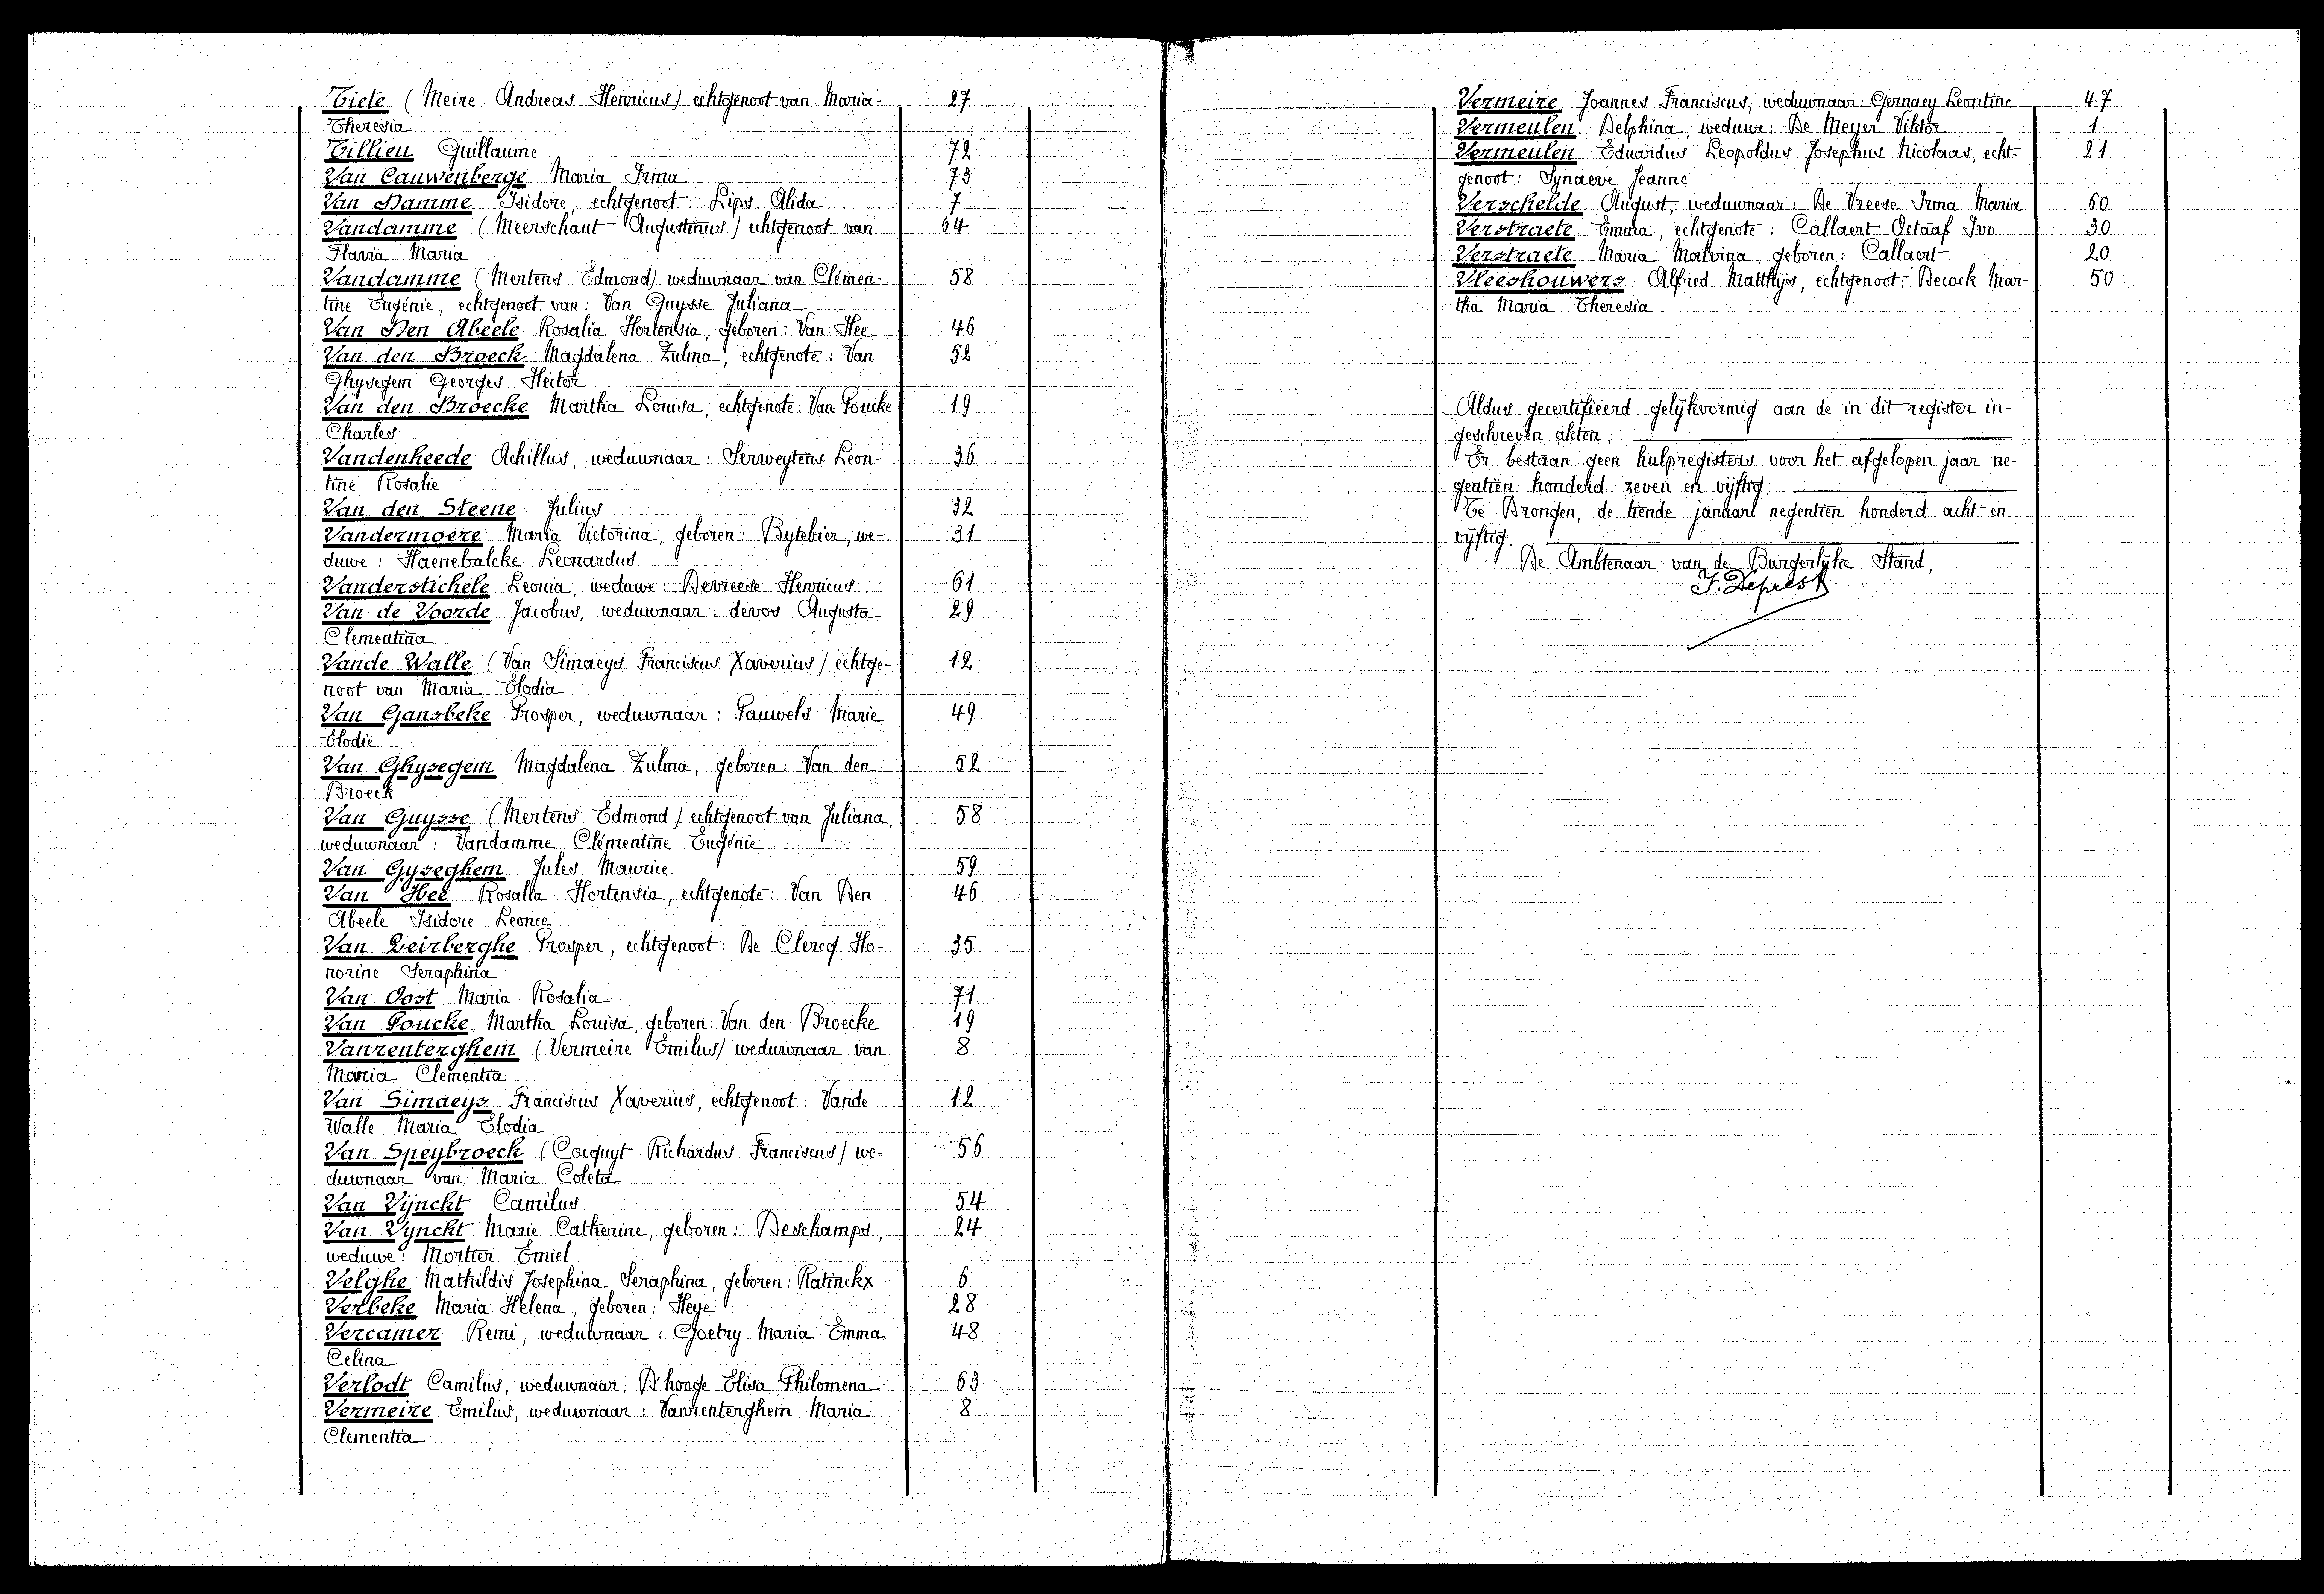 Tiele (Meire Andreas Henricus) echtgenoot van Maria- 27
Theresia
Tillieu Guillaume 72
Van Cauwenberge Maria Irma 73
Van Damme Isidore, echtgenoot: Lips Alida 7
Vandamme (Meerschaut Augustinus) echtgenoot van 64
Flavia Maria
Vandamme (Mertens Edmond) weduwnaar van Clémen- 58
tine Eugénie, echtgenoot van: Van Guysse Juliana
Van Den Abeele Rosalia Hortensia, geboren: Van Hee 46
Van den Broeck Magdalena Zulma, echtgenote: Van 52
Ghysegem Georges Hector
Van den Broecke Martha Louisa, echtgenote: Van Poucke 19
Charles
Vandenheede Achillus, weduwnaar: Serweytens Leon- 36
tine Rosalie
Van den Steene Julius 32
Vandermoere Maria Victorina, geboren: Bytebier, we- 31
duwe: Haenebalcke Leonardus
Vanderstichele Leonia, weduwe: Devreese Henricus 61
Van de Voorde Jacobus, weduwnaar: devos Augusta 29
Clementina
Vande Walle (Van Simaeys Franciscus Xaverius) echtge- 12
noot van Maria Elodia
Van Gansbeke Prosper, weduwnaar: Pauwels Marie 49
Elodie
Van Ghysegem Magdalena Zulma, geboren: Van den 52
Broeck
Van Guysse (Mertens Edmond) echtgenoot van Juliana, 58
weduwnaar: Vandamme Clémentine Eugénie
Van Gyseghem Jules Maurice 59
Van Hee Rosalia Hortensia, echtgenote: Van Den 46
Abeele Isidore Leonce
Van Leirberghe Prosper, echtgenoot: De Clercq Ho- 35
norine Seraphina
Van Oost Maria Rosalia 71
Van Poucke Martha Louisa, geboren: Van den Broecke 19
Vanrenterghem (Vermeire Emilus) weduwnaar van 8
Maria Clementia
Van Simaeys Franciscus Xaverius, echtgenoot: Vande 12
Walle Maria Elodia
Van Speybroeck (Cocquyt Richardus Franciscus) we- 56
duwnaar van Maria Coleta
Van Vijnckt Camilus 54
Van Vynckt Marie Catherine, geboren: Deschamps, 24
weduwe: Mortier Emiel
Velghe Mathildis Josephina Seraphina, geboren: Ratinckx 6
Verbeke Maria Helena, geboren: Heye 28
Vercamer Remi, weduwnaar: Goetry Maria Emma 48
Celina
Verlodt Camilus, weduwnaar: D'hooge Elisa Philomena 63
Vermeire Emilus, weduwnaar: Vanrenterghem Maria 8
Clementia
Vermeire Joannes Franciscus, weduwnaar: Gernaey Leontine 47
Vermeulen Delphina, weduwe: De Meyer Viktor 1
Vermeulen Eduardus Leopoldus Josephus Nicolaas, echt- 21
genoot: Synaeve Jeanne
Verschelde August, weduwnaar: De Vreese Irma Maria 60
Verstraete Emma, echtgenote: Callaert Octaaf Ivo 30
Verstraete Maria Malvina, geboren: Callaert 20
Vleeshouwers Alfred Matthijs, echtgenoot: Decock Mar- 50
tha Maria Theresia.
Aldus gecertifieerd gelijkvormig aan de in dit register in-
geschreven akten.
Er bestaan geen hulpregisters voor het afgelopen jaar ne-
gentien honderd zeven en vijftig.
Te Drongen, de tiende januari negentien honderd acht en
vijftig.
De Ambtenaar van de Burgerlijke Stand,
J. Deprest